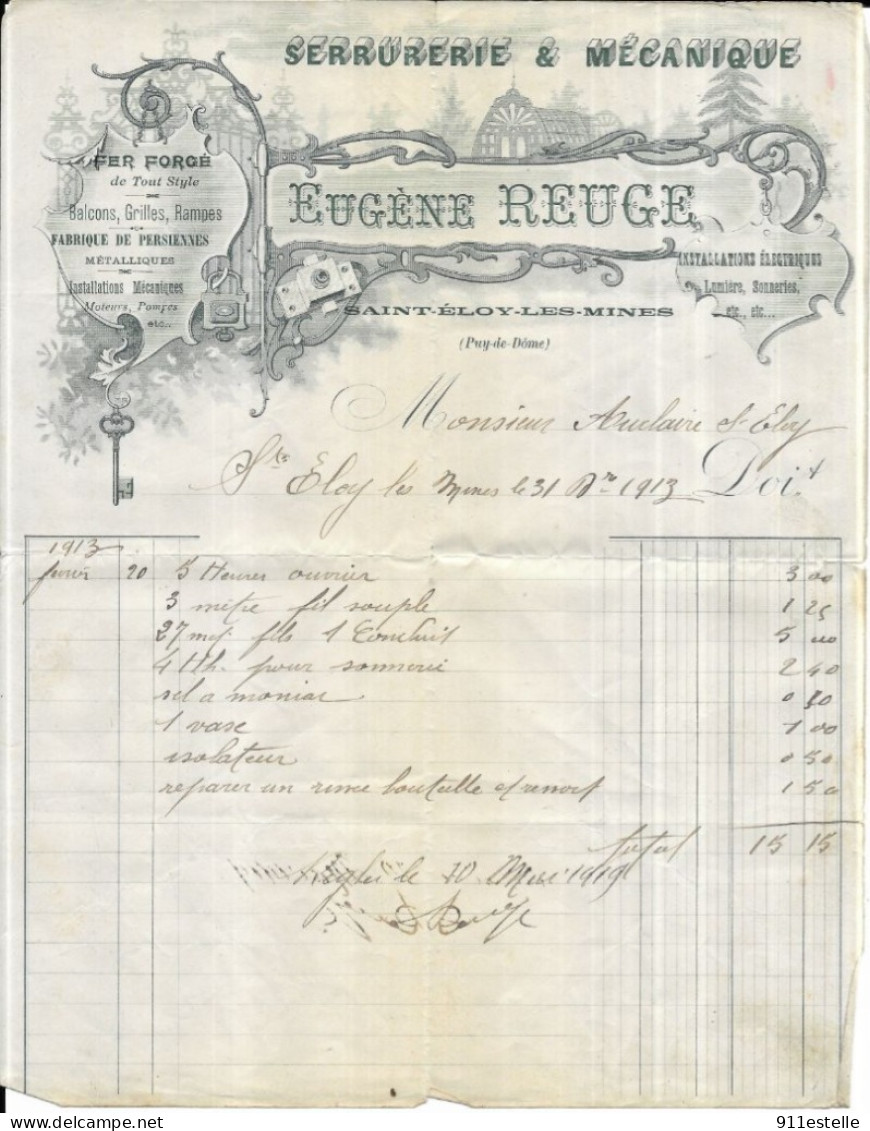 SERRURERIE & MÉCANIQUE
FER FORGÉ
de Tout Style
Balcons, Grilles, Rampes
FABRIQUE DE PERSIENNES
MÉTALLIQUES
Installations Mécaniques
Moteurs, Pompes
etc..
EUGÈNE REUGE
INSTALLATIONS ÉLECTRIQUES
Lumière, Sonneries,
etc., etc...
SAINT-ÉLOY-LES-MINES
(Puy-de-Dôme)
Monsieur Auclaire St Eloy
Eloy les Mines le 31 Bre 1913 Doit
1913
fevrier 20 5 Heures ouvrier 3 00
3 mètre fil souple 1 25
27 fils 1 Conduit 5
4 pour sonnerie 2 40
sel a moniac 0
1 vase 1 00
isolateur 0 50
reparer un rince bouteille 1 50
total 15 15
le 10
911estelle